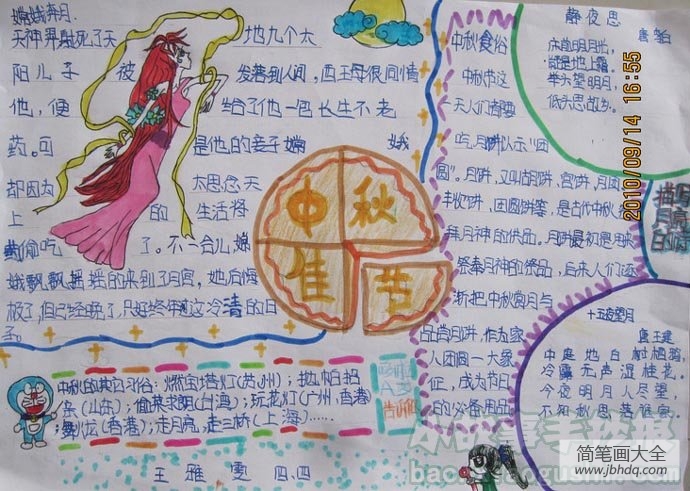 嫦娥奔月
天神羿射死了天地九个太
阳儿子被发落到人间，西王母很同情
他，便给了他一包长生不老
药。可是他的妻子嫦娥
却因为太思念天
上的生活将
药偷吃了。不一会儿，嫦
娥飘飘摇摇的来到了月宫，她后悔
极了，但已经晚了，只好终年过这冷清的日
子。
中秋佳节
中秋食俗
中秋节这
天人们都要
吃月饼以示“团
圆”。月饼，又叫胡饼、宫饼、月团
丰收饼、团圆饼等，是古代中秋
拜月神的供品。月饼最初是来
祭奉月神的祭品，后来人们逐
渐把中秋赏月与
品尝月饼，作为家
人团圆一大象
征，成为节日
的必备用品
静夜思
唐 李白
床前明月光，
疑是地上霜。
举头望明月，
低头思故乡。
描写
月亮
的诗
十五夜望月
唐 王建
中庭地白树栖鸦，
冷露无声湿桂花。
今夜明月人尽望，
不知秋思落谁家。
中秋的其它习俗：燃宝塔灯（苏州）；抛帕招
亲（山东）；偷菜求郎（台湾）；玩花灯（广州、香港）
舞火龙（香港）；走月亮，走三桥（上海）……
王雅雯 四、四
2010/09/14 16:55
简笔画大全
www.jbhdq.com